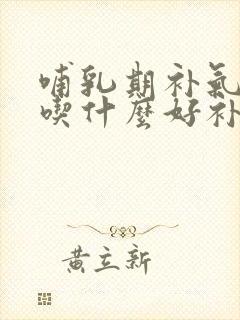 哺乳期补氣
喫什麼好补
黄立新